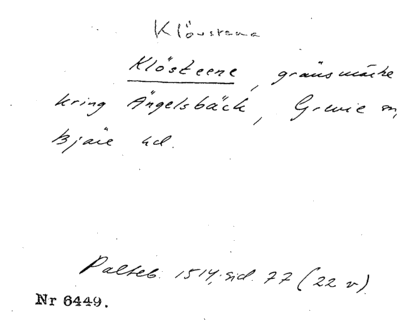 Klövstena
Klösteene, gränsmärke
kring Ängelsbäck, Grevie sn,
Bjäre hd.
Palteb. 1514, sid. 77 (22 v)
Nr 6449.